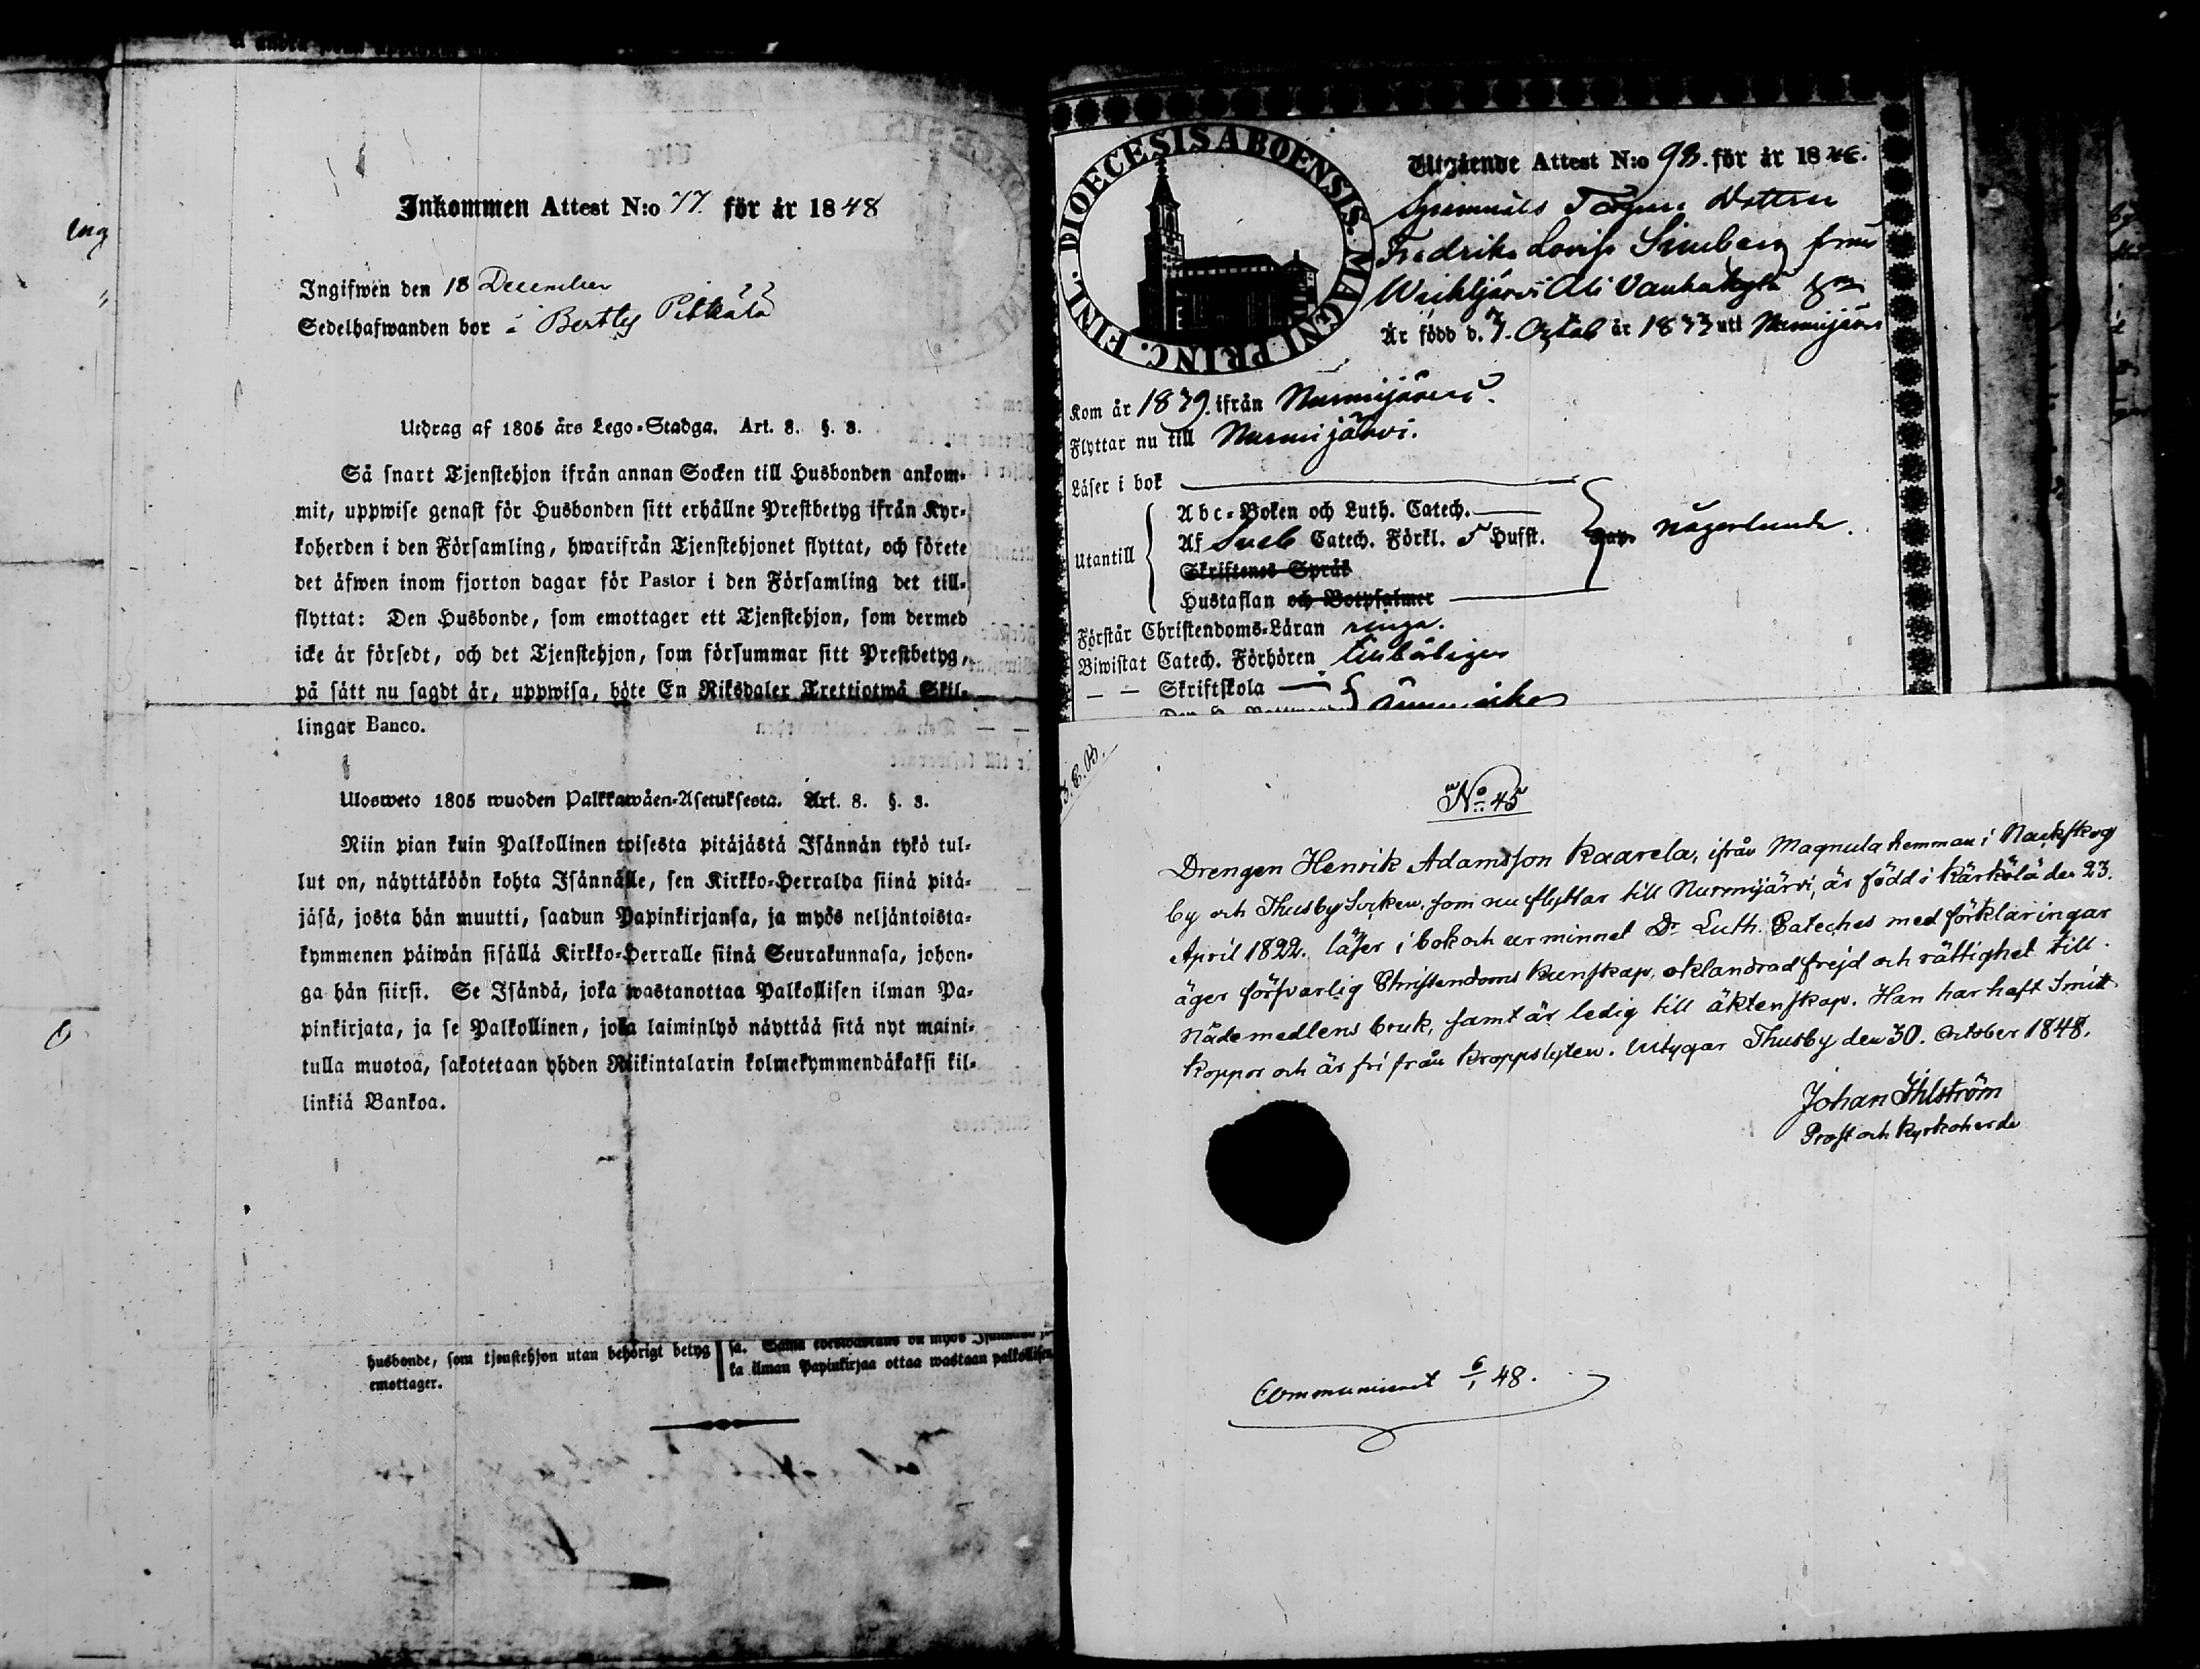 Inkommen Attest N:o 77. för år 1848
Ingifwen den 18 December
Sedelhafwanden bor i Bertby Pitkälä
Utdrag af 1805 års Lego-Stadga. Art. 8. §. 8.
Så snart Tjenstehjon ifrån annan Socken till Husbonden ankom-
mit, uppwise genast för Husbonden sitt erhållne Prestbetyg ifrån Kyr-
koherden i den Församling, hwarifrån Tjenstehjonet flyttat, och förete
det äfwen inom fjorton dagar för Pastor i den Församling det till-
flyttat: Den Husbonde, som emottager ett Tjenstehjon, som dermed
icke är försedt, och det Tjenstehjon, som försummar sitt Prestbetyg,
på sätt nu sagdt är, uppwisa, böte En Riksdaler Trettiotwå Skil-
lingar Banco.
Ulosweto 1805 wuoden Palkkawäen-Asetuksesta. Art. 8. §. 8.
Niin pian kuin Palkollinen toisesta pitäjästä Isännän tykö tul-
lut on, näyttäköön kohta Isännälle, sen Kirkko-Herralda siinä pitä-
jäsä, josta hän muutti, saadun Papinkirjansa, ja myös neljäntoista-
kymmenen päiwän sisällä Kirkko-Herralle siinä Seurakunnasa, johon-
ga hän siirsi. Se Isändä, joka wastanottaa Palkollisen ilman Pa-
pinkirjata, ja se Palkollinen, joka laiminlyö näyttää sitä nyt maini-
tulla muotoa, sakotetaan yhden Riikintalarin kolmekymmendäkaksi kil-
linkiä Bankoa.
husbonde, som tjenstehjon utan behörigt betyg
emottager.
sa. Sama edeswastaus on myös Isännällä jo-
ka ilman Papinkirjaa ottaa wastaan palkollisen
DIOECESIS ABOENSIS. MAGNI PRINC. FINL.
Utgående Attest N:o 98. för år 18
Dottren
Fredrika Lovisa Simberg från
Wichtjärvi Ali Vanhakylä
Är född d. 7. Octob år 1833 uti Nurmijärvi
Kom år 1839. ifrån Nurmijärvi.
Flyttar nu till Nurmijärvi.
Läser i bok
Utantill
Abc-Boken och Luth. Catech.
Af Sveb Catech. Förkl. 5 Hufst. någorlunda.
Skriftenes Språk
Hustaflan och Botpsalmer
Förstår Christendoms-Läran ringa.
Biwistat Catech. Förhören
— — Skriftskola
No 45
Drengen Henrik Adamsson Kaarela, ifrån Magnula hemman i Nackskog
by och Thusby Socken, som nu flyttar till Nurmijärvi, är född i Kärkölä den 23.
April 1822. läser i bok och ur minnet Dr Luth. Cateches med förklaringar
äger försvarlig Christendoms kunskap, oklandrad frejd och rättighet till
Nådemedlens bruk, samt är ledig till äktenskap. Han har haft Smitt
koppor och är fri från kroppslyten. Utygar Thusby den 30. October 1848.
Johan Ihlström
Prost och Kyrkoherde
Communicerat 6/1 48.